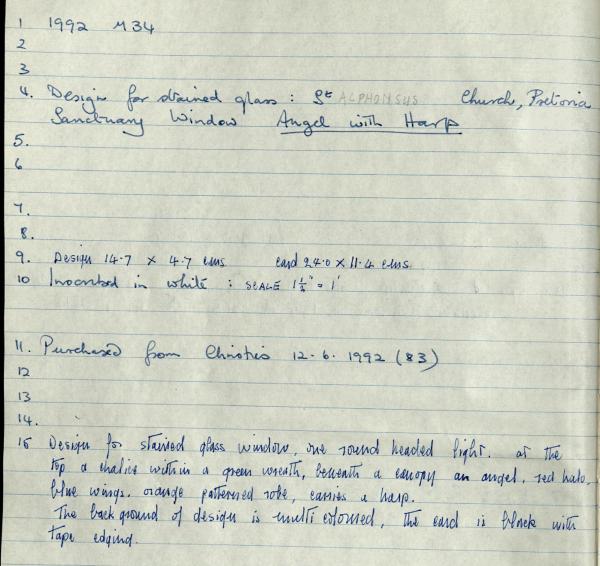 1 1992 M34
2
3
4. Design for stained glass: St ALPHONSUS Church, Pretoria
Sanctuary Window Angel with Harp
5.
6
7.
8.
9. Design 14.7 x 4.7 cms card 24.0 x 11.4 cms
10 Inscribed in white: SCALE 1½" = 1'
11. Purchased from Christies 12.6.1992 (83)
12
13
14.
15 Design for stained glass window, one round headed light. at the
top a chalice within a green wreath, beneath a canopy an angel, red halo,
blue wings, orange patterned robe, carries a harp.
The background of design is multi coloured, the card is black with
tape edging.